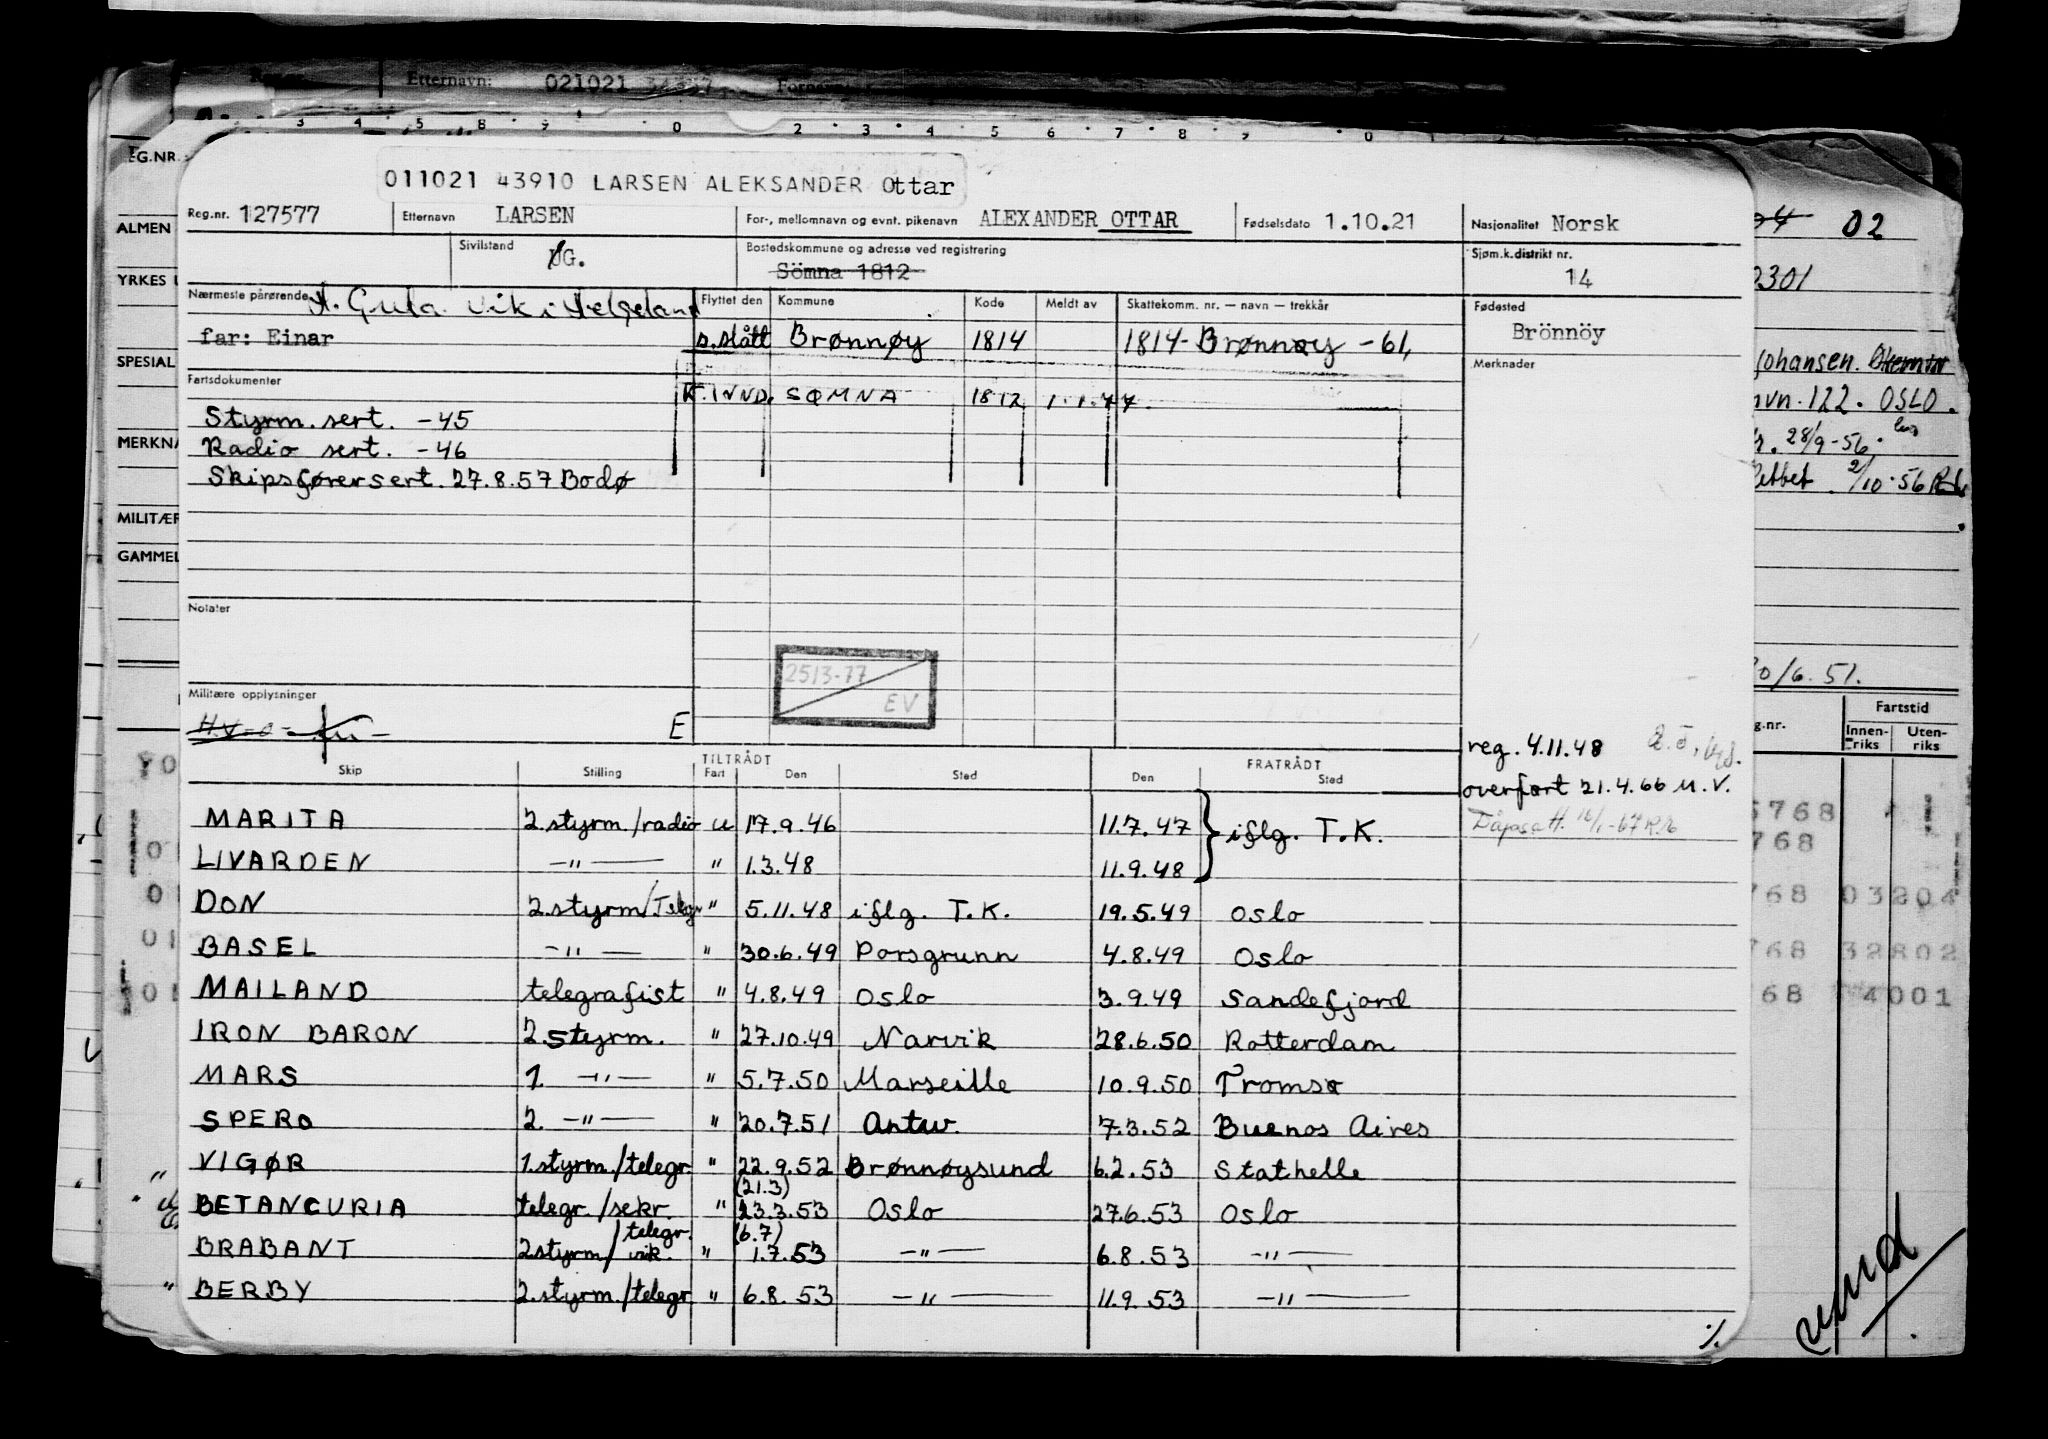 Etternavn: 021021
3 4 5 8 9 0 2 3 4 5 6 7 8 9 0
EG.NR.
ALMEN
YRKES
SPESIAL
MERKNA
MILITÆR
GAMMEL
011021 43910 LARSEN ALEKSANDER Ottar
Reg.nr. 127577 Etternavn LARSEN For-, mellomnavn og evnt. pikenavn ALEXANDER OTTAR Fødselsdato 1.10.21 Nasjonalitet Norsk
Sivilstand UG. Bostedskommune og adresse ved registrering Sömna 1812 Sjøm.k.distrikt nr. 14
Nærmeste pårørende A. Gula Vik i Helgeland Flyttet den Kommune Kode Meldt av Skattekomm. nr. — navn — trekkår Fødested
far: Einar s.slått Brønnøy 1814 1814-Brønnøy -61, Brönnöy
Fartsdokumenter K.INND. SØMNA 1812 1.1.77. Merknader
Styrm. sert. -45
Radio sert. -46
Skipsførersert. 27.8.57 Bodø
Notater
2513-77
EV
Militære opplysninger
H.V-0- E
reg. 4.11.48
overført 21.4.66 M.V.
Skip Stilling TILTRÅDT Fart Den Sted FRATRÅDT Den Sted
MARITA 2.styrm./radio u 17.9.46 11.7.47 } iflg. T.K.
LIVARDEN -"- " 1.3.48 11.9.48
DON 2.styrm/Telegr " 5.11.48 iflg. T.K. 19.5.49 Oslo
BASEL -"- " 30.6.49 Porsgrunn 4.8.49 Oslo
MAILAND telegrafist " 4.8.49 Oslo 3.9.49 Sandefjord
IRON BARON 2.styrm. " 27.10.49 Narvik 28.6.50 Rotterdam
MARS 1. -"- " 5.7.50 Marseille 10.9.50 Tromsø
SPERO 2. -"- " 20.7.51 Antw. 7.3.52 Buenos Aires
VIGØR 1.styrm./telegr. " 22.9.52 Brønnøysund 6.2.53 Stathelle
BETANCURIA telegr./sekr. " (21.3) 23.3.53 Oslo 27.6.53 Oslo
BRABANT 2styrm/telegr. vik. " (6.7) 1.7.53 -"- 6.8.53 -"-
BERBY 2.styrm./telegr. " 6.8.53 -"- 11.9.53 -"-
./.
02
2301
Johansen.
122. OSLO.
28/9-56.
2/10-56
0/6.51.
g.nr. Fartstid
Innen-riks Uten-riks
5768
768
768 03204
768 32802
768 4001